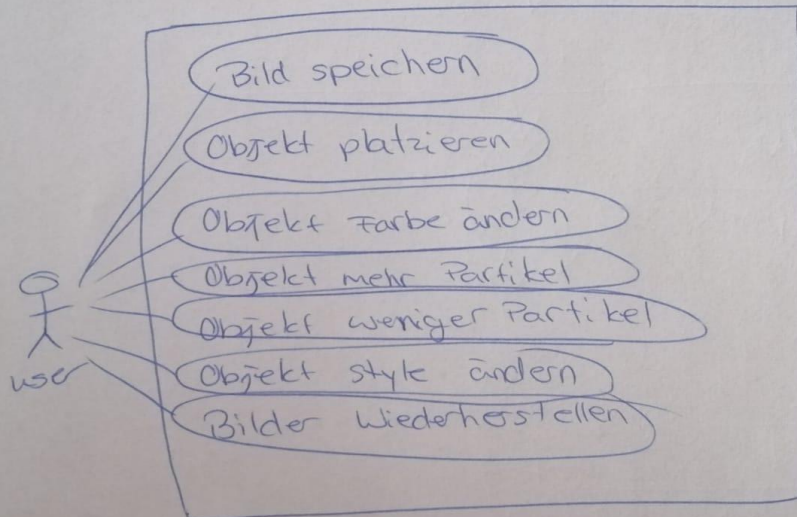 Bild speichern
Objekt platzieren
Objekt Farbe ändern
Objekt mehr Partikel
Objekt weniger Partikel
user
Objekt style ändern
Bilder wiederherstellen